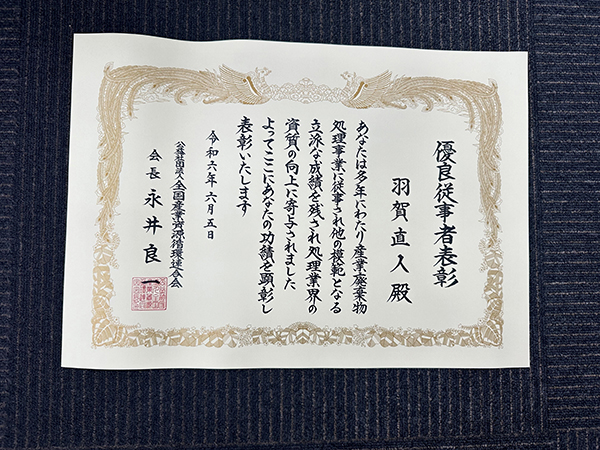 優良従事者表彰
羽賀直人殿
あなたは多年にわたり産業廃棄物
処理事業に従事され他の模範となる
立派な成績を残され処理業界の
資質の向上に寄与されました
よってここにあなたの功績を顕彰し
表彰いたします
令和六年六月五日
公益社団法人全国産業資源循環連合会
会長 永井良一